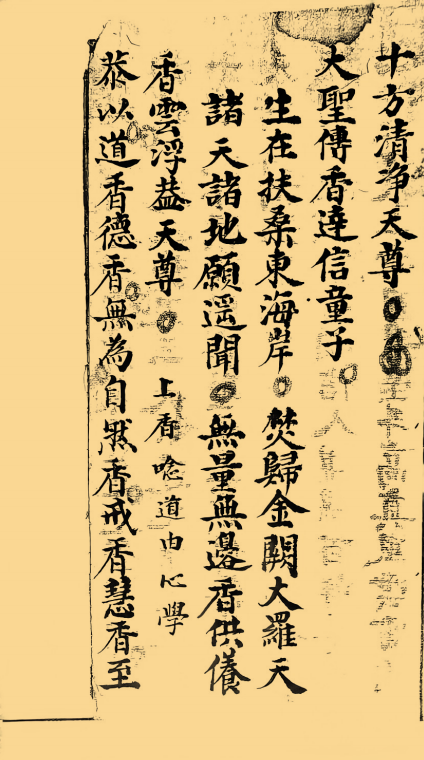 十方清净天尊
大聖傳香達信童子
生在扶桑東海岸 焚歸金闕大羅天
諸天諸地願遥聞 無量無邊香供養
香雲浮盖天尊 上香唸道由心學
恭以道香德香無為自然香戒香慧香至